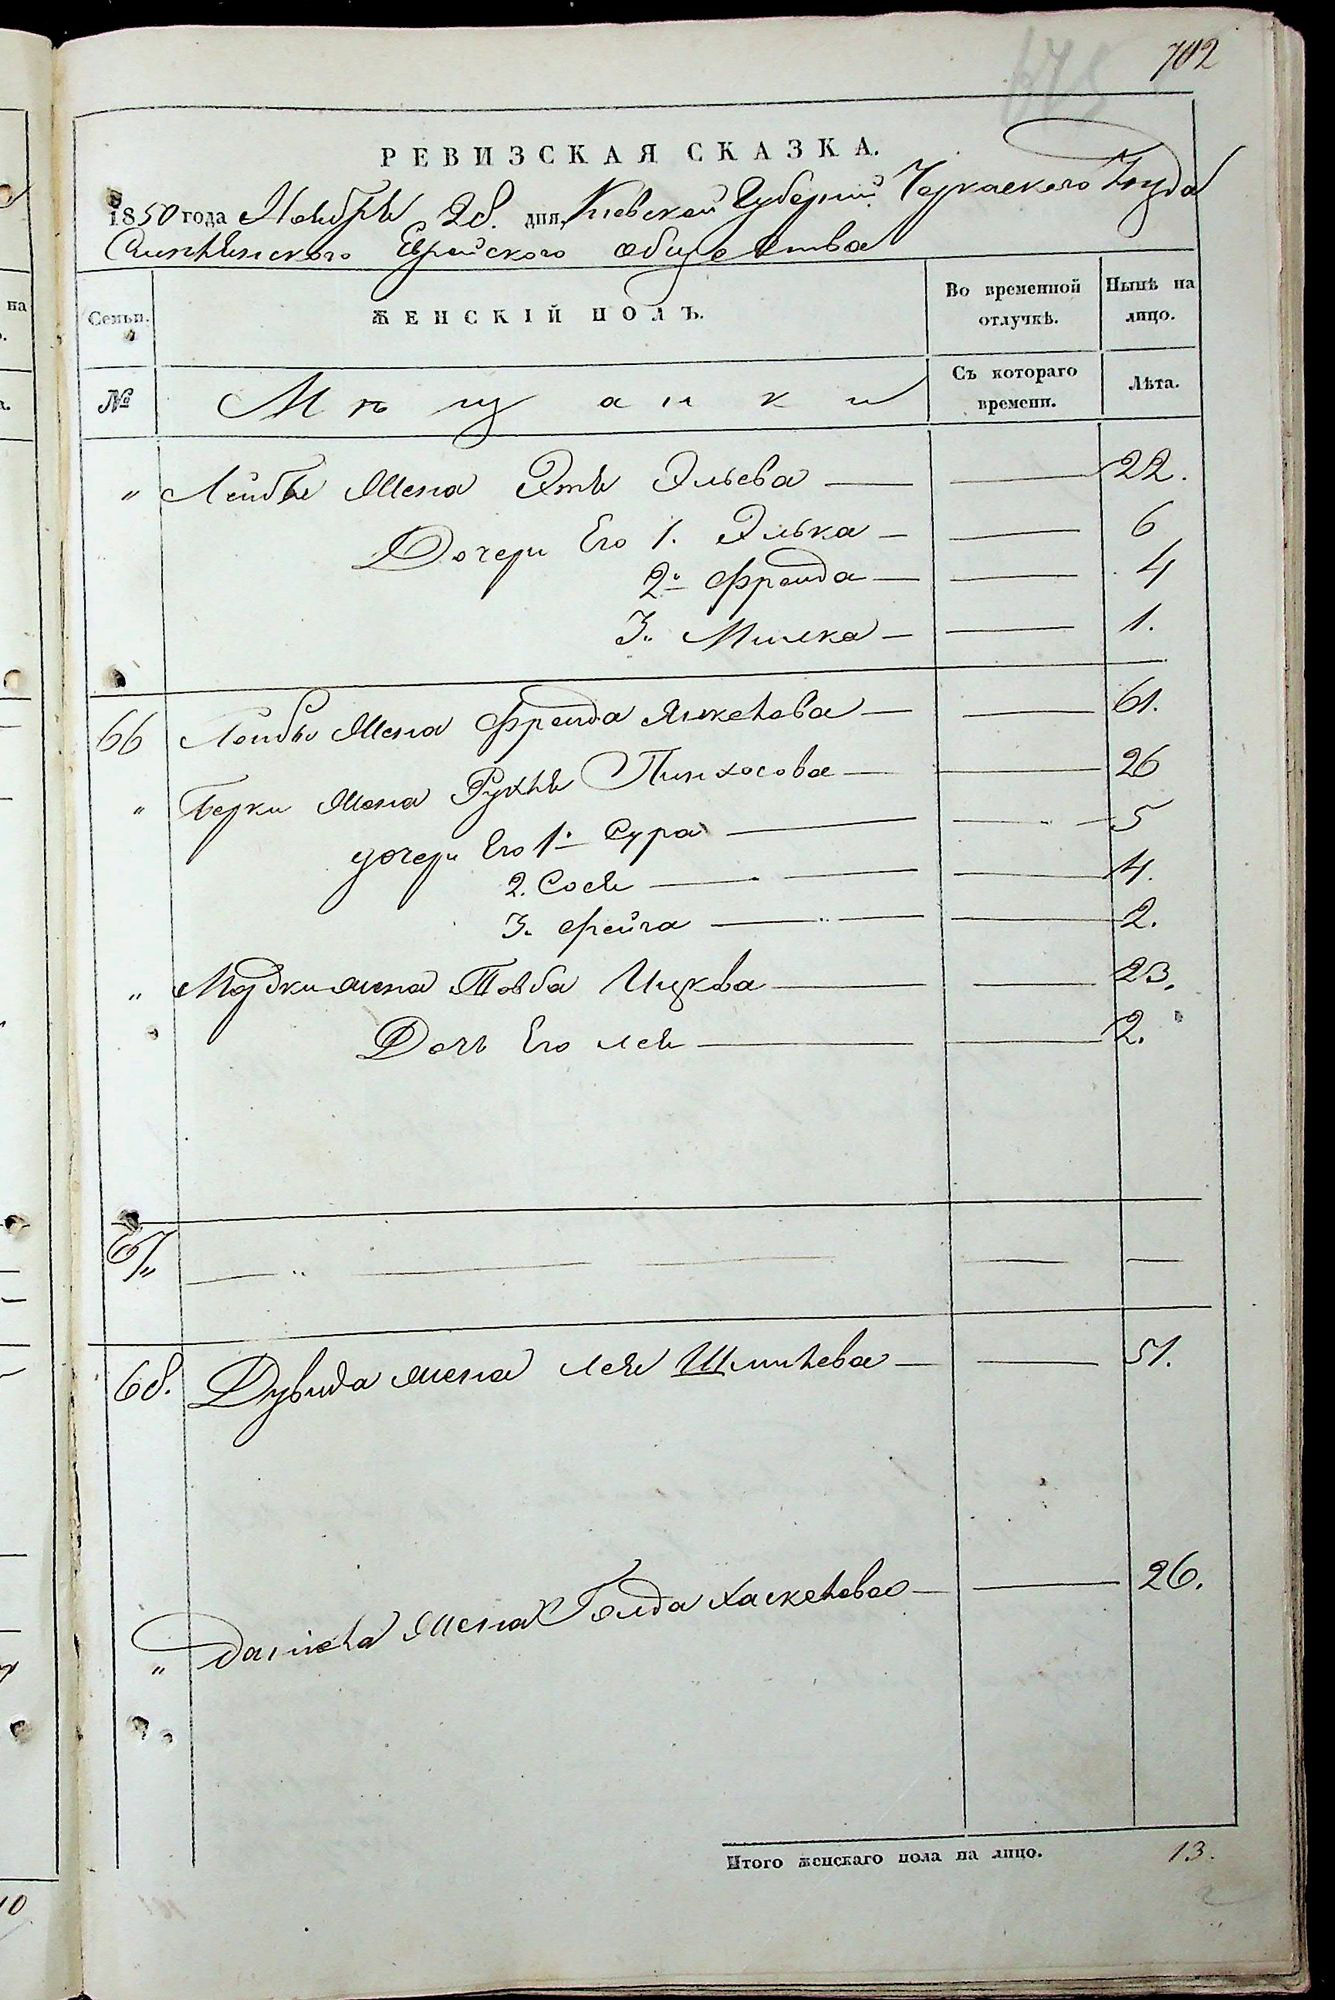 702
675
РЕВИЗСКАЯ СКАЗКА.
1850 года Ноября 28. дня, Кіевской Губерніи Черкаского Уезда
Еврейского общества
Семьи. ЖЕНСКІЙ ПОЛЪ. Во временной отлучкѣ. Нынѣ на лицо.
№ Мѣщанки Съ котораго времени. Лѣта.
„ Лейбы Жена Этя Эльева — — 22.
Дочери Его 1. Элька — — 6
2. Фрейда — — 4
3. Милка — — 1.
66 Лейбы Жена Фрейда Янкелева — — 61.
„ Берки Жена Рухля Пинхосова — — 26
дочери Его 1. Сура — — 5
2. Сося — — 4.
3. Фейга — — 2.
„ Мордки жена Товба Ицкова — — 23.
Дочь Его Лея — — 2.
67 — „ — — — —
68. Дувида жена Лея Шмилева — — 51.
„ Даніела Жена Голда Хаскелева — — 26.
Итого женскаго пола на лицо. 13.